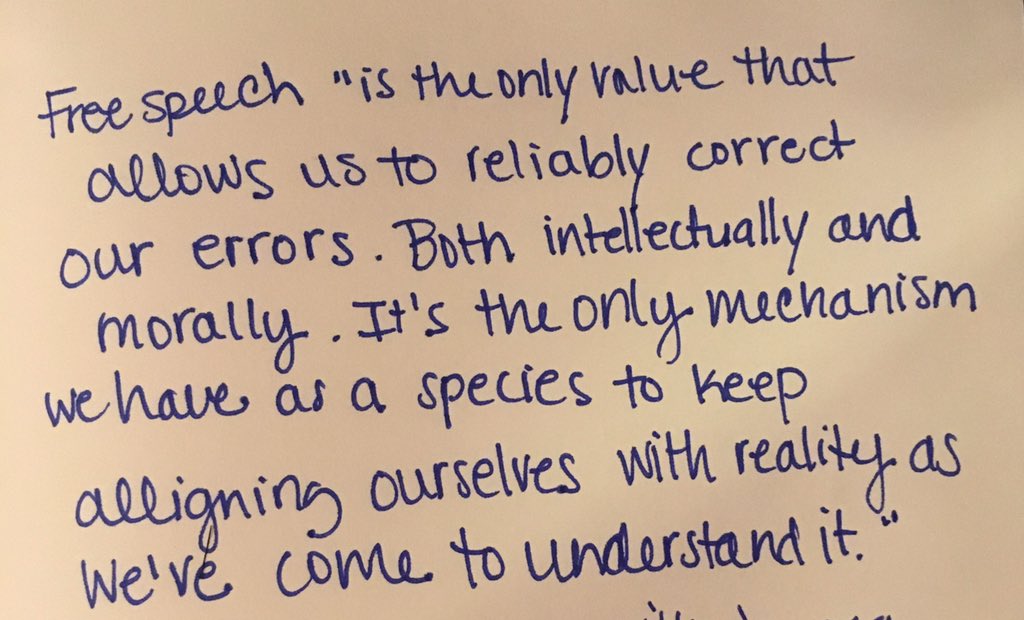 Free speech "is the only value that
allows us to reliably correct
our errors. Both intellectually and
morally. It's the only mechanism
we have as a species to keep
alligning ourselves with reality as
we've come to understand it."